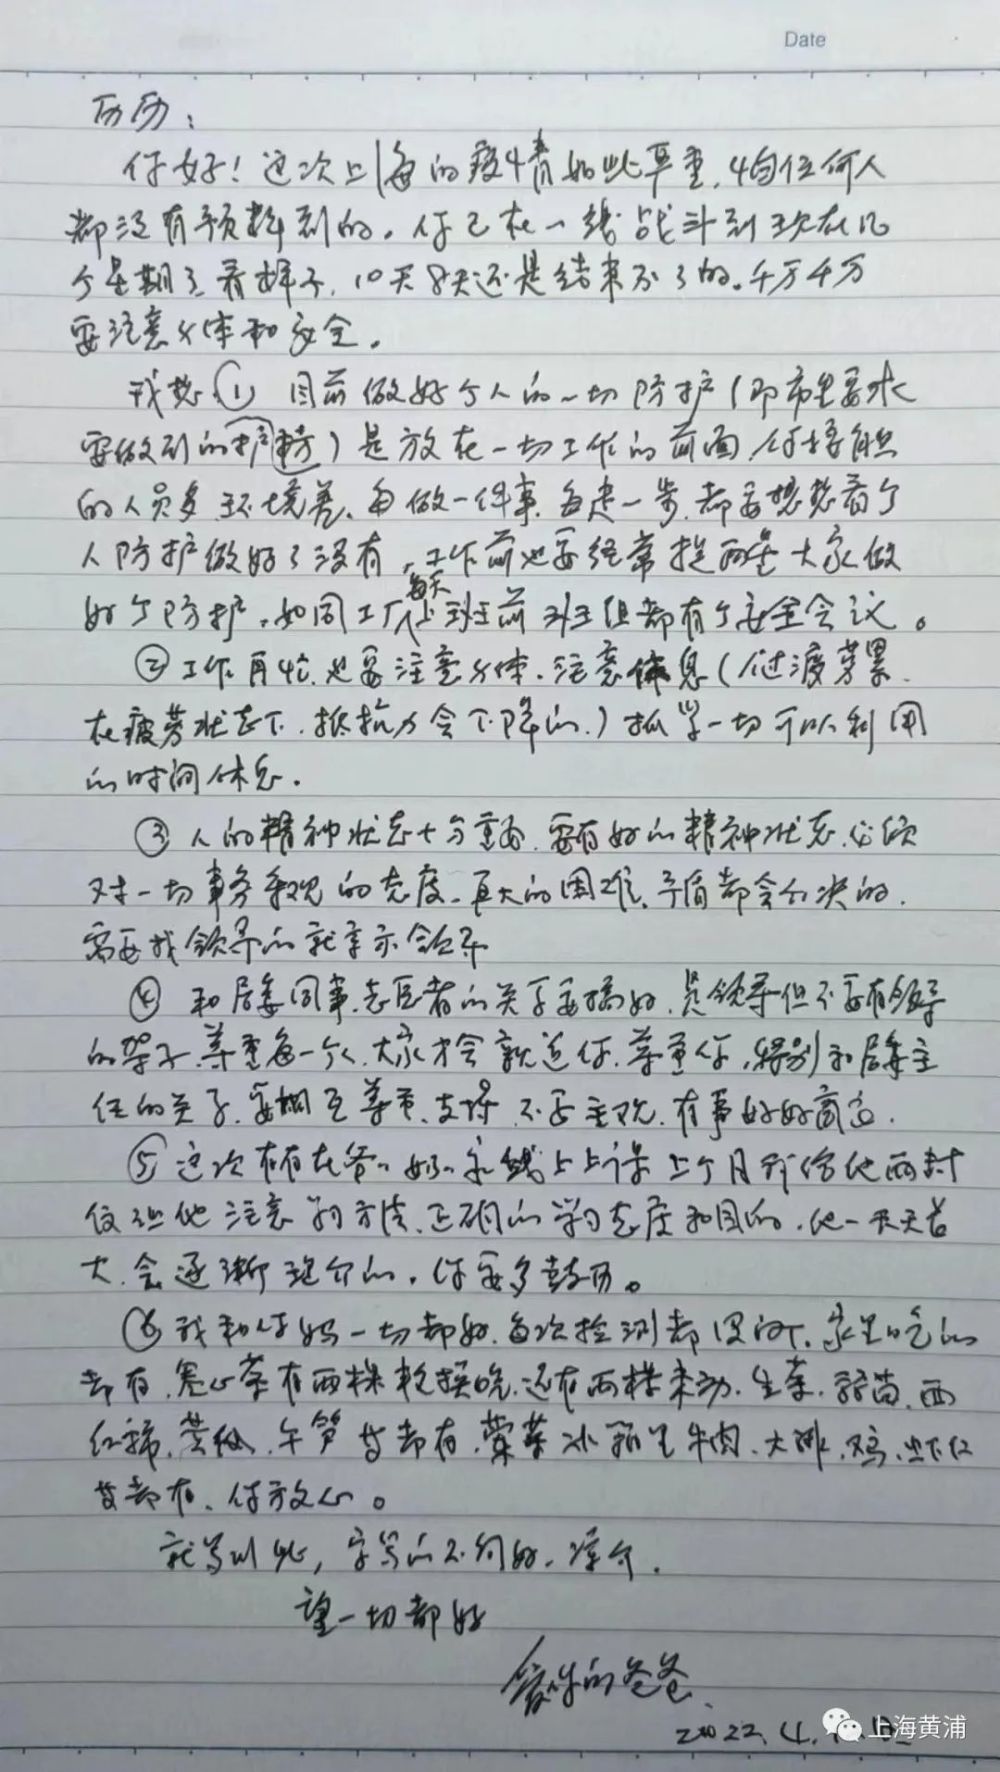 Date
历历：
你好！这次上海的疫情如此严重，恐怕任何人
都没有预料到的。你已在一线战斗到现在几
个星期了，看样子，10天8天还是结束不了的。千万千万
要注意身体和安全。
我想①目前做好个人的一切防护（即市里要求
要做到的防护）是放在一切工作的前面，你接触
的人员多，环境差，每做一件事，每走一步，都要想想看个
人防护做好了没有，工作前也要经常提醒大家做
好个防护，如同工厂每天上班前班组都有个安全会议。
②工作再忙，也要注意身体，注意休息（过渡劳累，
在疲劳状态下，抵抗力会下降的）抓紧一切可以利用
的时间休息。
③人的精神状态十分重要，要有好的精神状态，必须
对一切事务乐观的态度，再大的困难、矛盾都会解决的，
需要找领导的就去示领导
④和居委同事、志愿者的关系要搞好，是领导但不要有领导
的架子，尊重每一个人，大家才会亲近你，尊重你，特别和居委主
任的关系，要相互尊重、支持，不要主观，有事好好商量。
⑤这次 在爷爷奶奶家线上上课，上个月我给他两封
信，让他注意学习方法、正确的学习态度和目的，他一天天长
大，会逐渐理解的，你要多鼓励。
⑥我和你妈一切都好，每次检测都没问题，家里吃的
都有，卷心菜有两棵 还有两棵未动，生菜、鸡毛菜、西
红柿、茭白、竹笋等都有，荤菜冰箱里牛肉、大排、鸡、虾仁
等都有，你放心。
就写到此，字写的不够好，谅解。
望一切都好
爱你的爸爸
2022.4.
上海黄浦